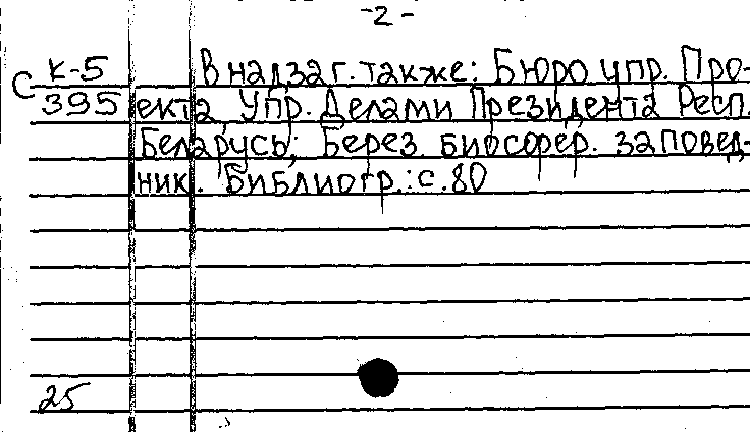 -2-
К-5 В надзаг. также: Бюро упр. Про-
С 395 екта, Упр. Делами Президента Респ.
Беларусь; Берез. биосфер. заповед-
ник. Библиогр.: с. 80
25